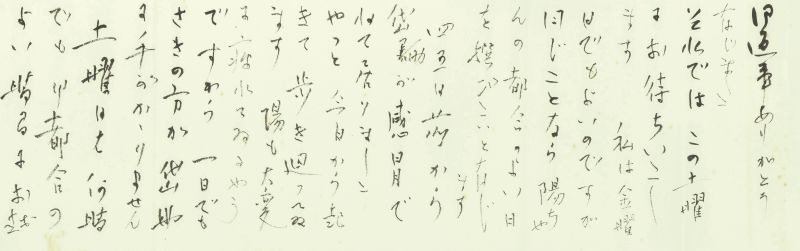 御返事ありがとう
なじました
それではこの土曜
にお待ちいたし
ます 私は金曜
日でもよいのですが
同じことなら陽ちや
んの都合のよい日
を撰びたいと存じ
ます
四五日前から
岱助が感冒で
ねて居りました
やつと今日から起
きて歩き廻つてゐ
ます 陽も大変
に疲れてゐるやう
ですわう 一日でも
さきの方が岱助
に手がかゝりません
土曜日も何時
でも御都合の
よい時るにお越